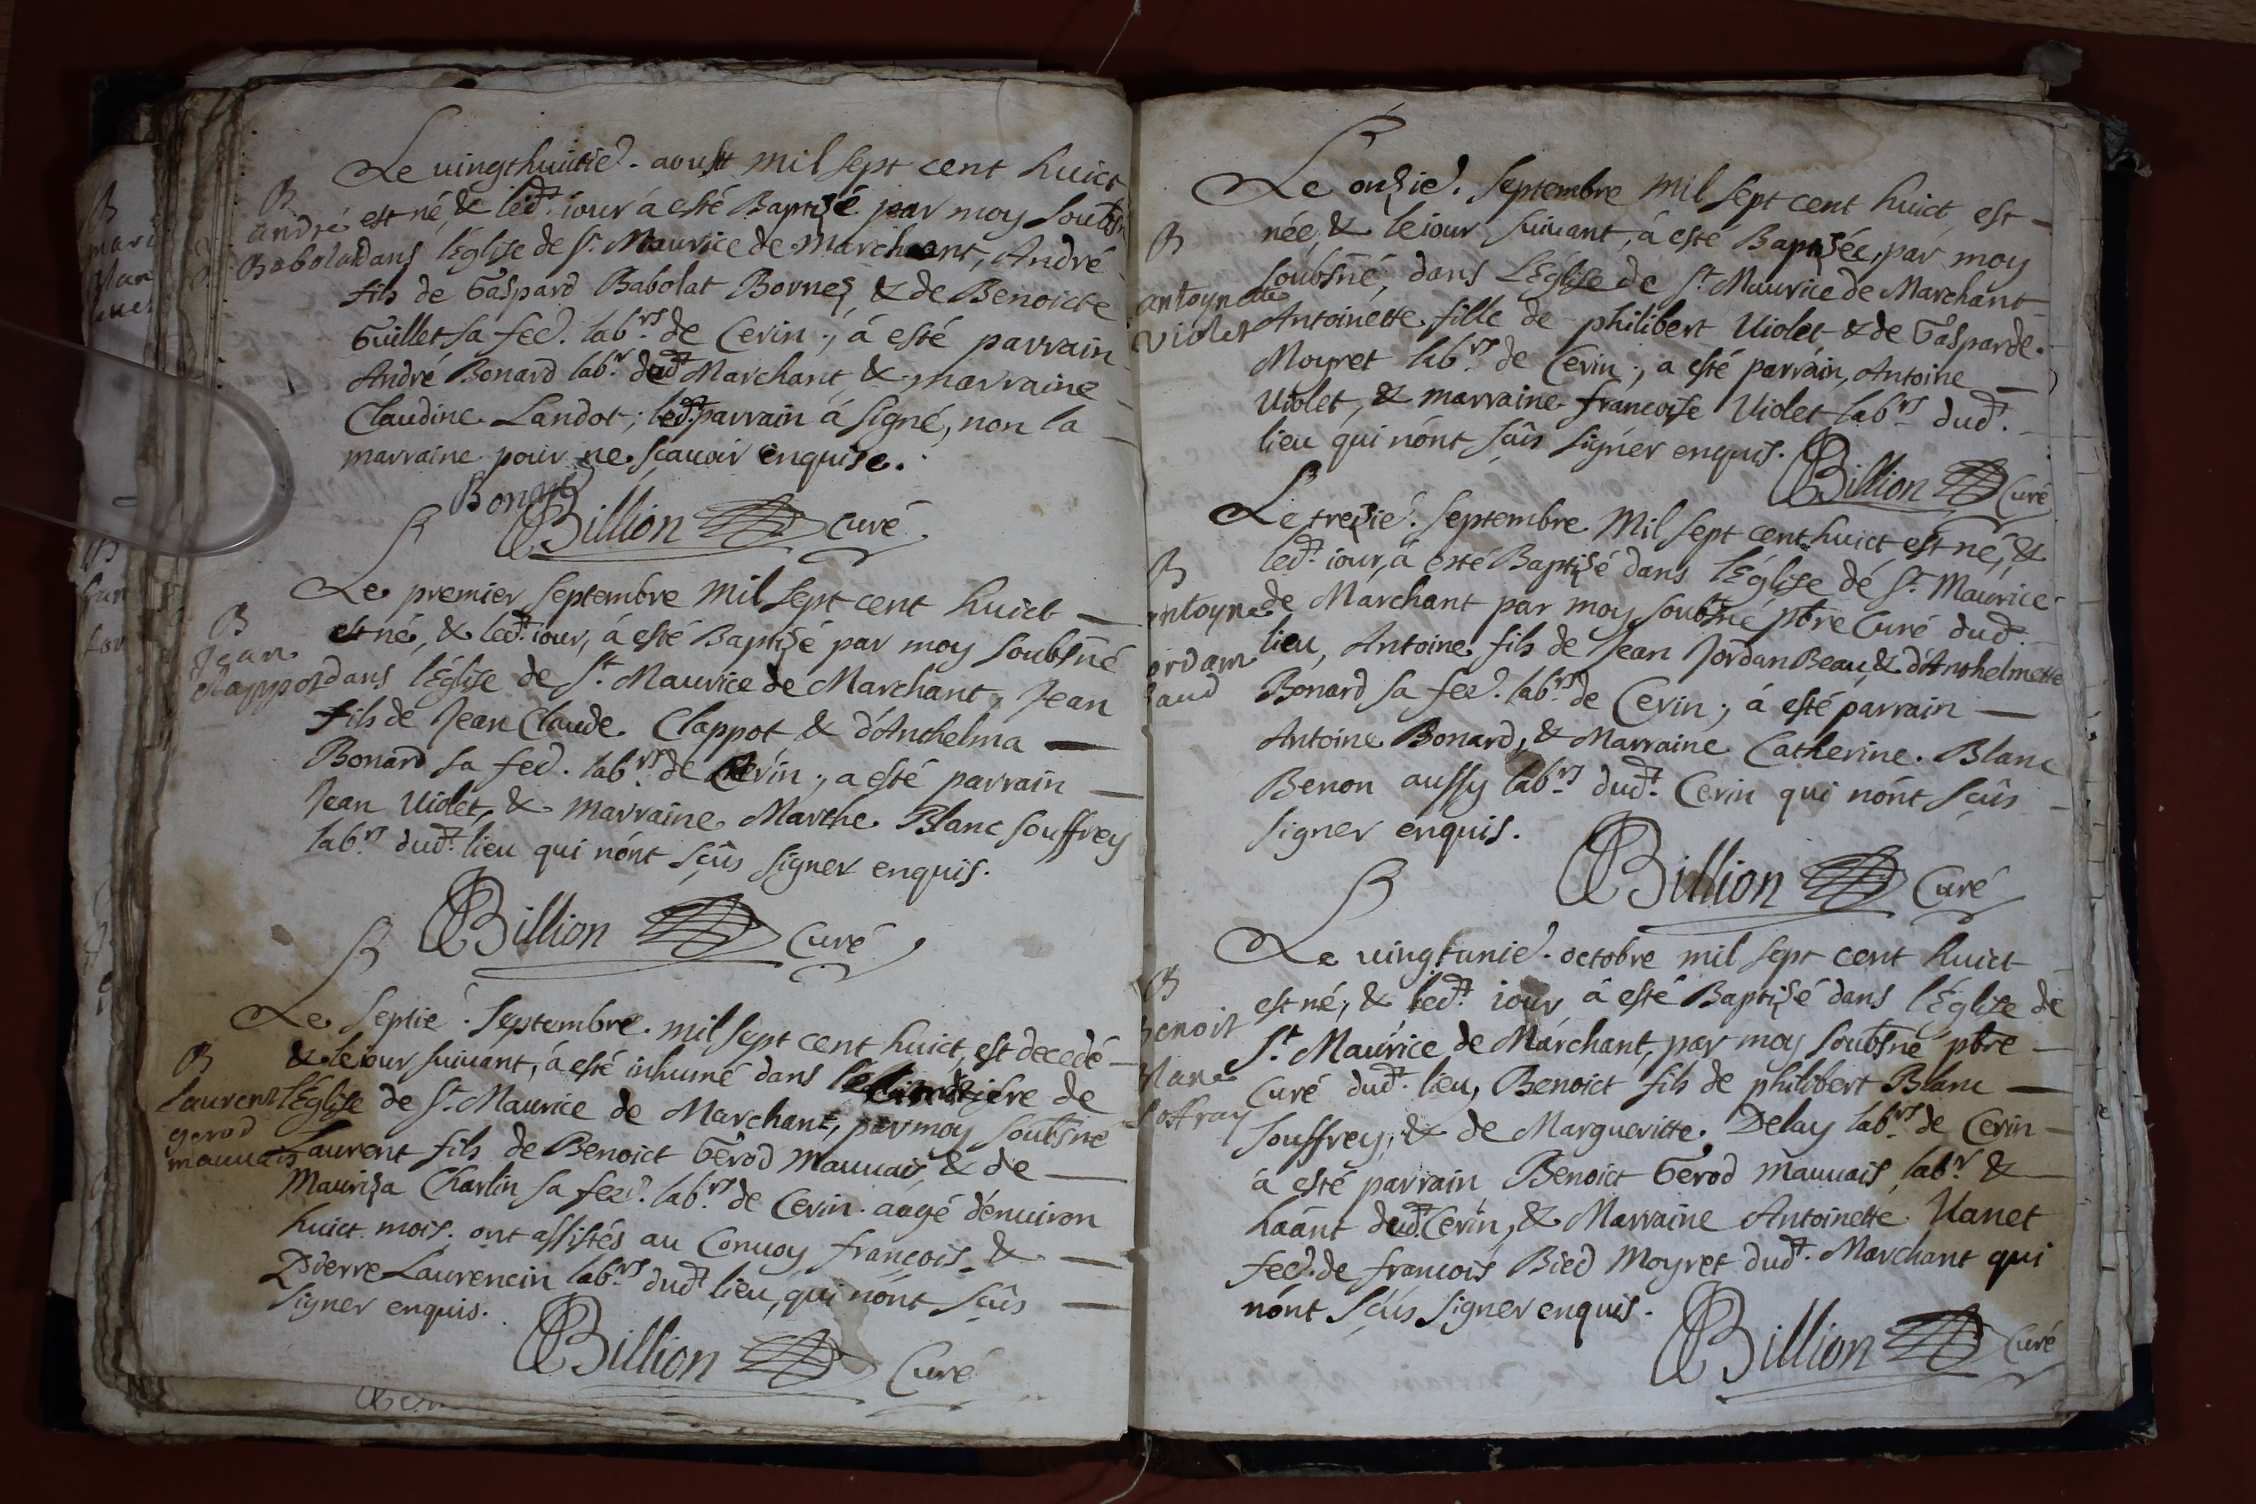 Le vingthuitie. aoust mil sept cent huict
B
andré
Babolat
est né, & led.t iour á esté Baptizé par moy soubsn
dans l'Eglise de S.t Maurice de Marchant, André
fils de Gaspard Babolat Bornez & de Benoicte
Guillet sa fee. lab.rs de Cerin; á esté parrain
André Bonard lab.r dud.t Marchant & marraine
Claudine Landot; led.t parrain á signé, non la
marraine pour ne sçauoir enquise.
Bonard
Billion Curé
Le premier septembre mil sept cent huict
B
Jean
Clappot
est né, & led.t iour, á esté Baptizé par moy soubsñé
dans l'Eglise de S.t Maurice de Marchant, Jean
fils de Jean Claude Clappot & d'Anthelma
Bonard sa fee. lab.rs de Cerin; a esté parrain
Jean Uiolet, & marraine Marthe Blanc Souffrey
lab.rs dud.t lieu qui nónt sçûs signer enquis.
Billion Curé
Le septié. septembre mil sept cent huict, est decedé
B
Laurent
gerod
mauuais
& le iour suiuant, á esté inhumé dans le cimetiere de
l'Eglise de S.t Maurice de Marchant, par moy soubsñé
Laurent fils de Benoict Gérod Mauuais & de
Mauriza Charlin sa fee. lab.rs de Cerin aagé d'enuiron
huict mois. ont assistés au Conuoy francois &
Pierre Laurencin lab.rs dud.t lieu, qui nónt sçûs
signer enquis.
Billion Curé
Le onzie. septembre mil sept cent huict, est
B
antoynette
Violet
née, & le iour suiuant, á esté Baptizée, par moy
soubsñé, dans l'Eglise de S.t Maurice de Marchant
Antoinette fille de philibert Uiolet & de Gasparde
Moyret lab.rs de Cerin; a esté parrain, Antoine
Uiolet, & marraine francoise Uiolet lab.rs dud.t
lieu qui nónt sçûs signér enquis.
Billion Curé
Le trezie. septembre mil sept cent huict, est né, &
B
ntoyne
ordam
baud
led.t iour, á esté Baptizé dans l'Eglise de S.t Maurice
de Marchant par moy soubsñé pbre Curé dud.t
lieu, Antoine fils de Jean Jordan Beau, & d'Anthelmette
Bonard sa fee. lab.rs de Cerin; á esté parrain
Antoine Bonard, & Marraine Catherine Blanc
Benon aussy lab.rs dud.t Cerin qui nónt sçûs
signer enquis.
Billion Curé
Le uingtunie. octobre mil sept cent huict
B
benoit
blanc
soffray
est né, & led.t iour á esté Baptizé dans l'Eglise de
S.t Maurice de Marchant, par moy soubsñé pbre
Curé dud.t lieu, Benoict fils de philibert Blanc
Souffrey, & de Margueritte Delay lab.rs de Cerin
á esté parrain Benoict Gérod Mauuais, lab.r &
haânt dud.t Cerin, & Marraine Antoinette Uanet
fee. de francois Bied Moyret dud.t Marchant qui
nónt sçûs signer enquis.
Billion Curé